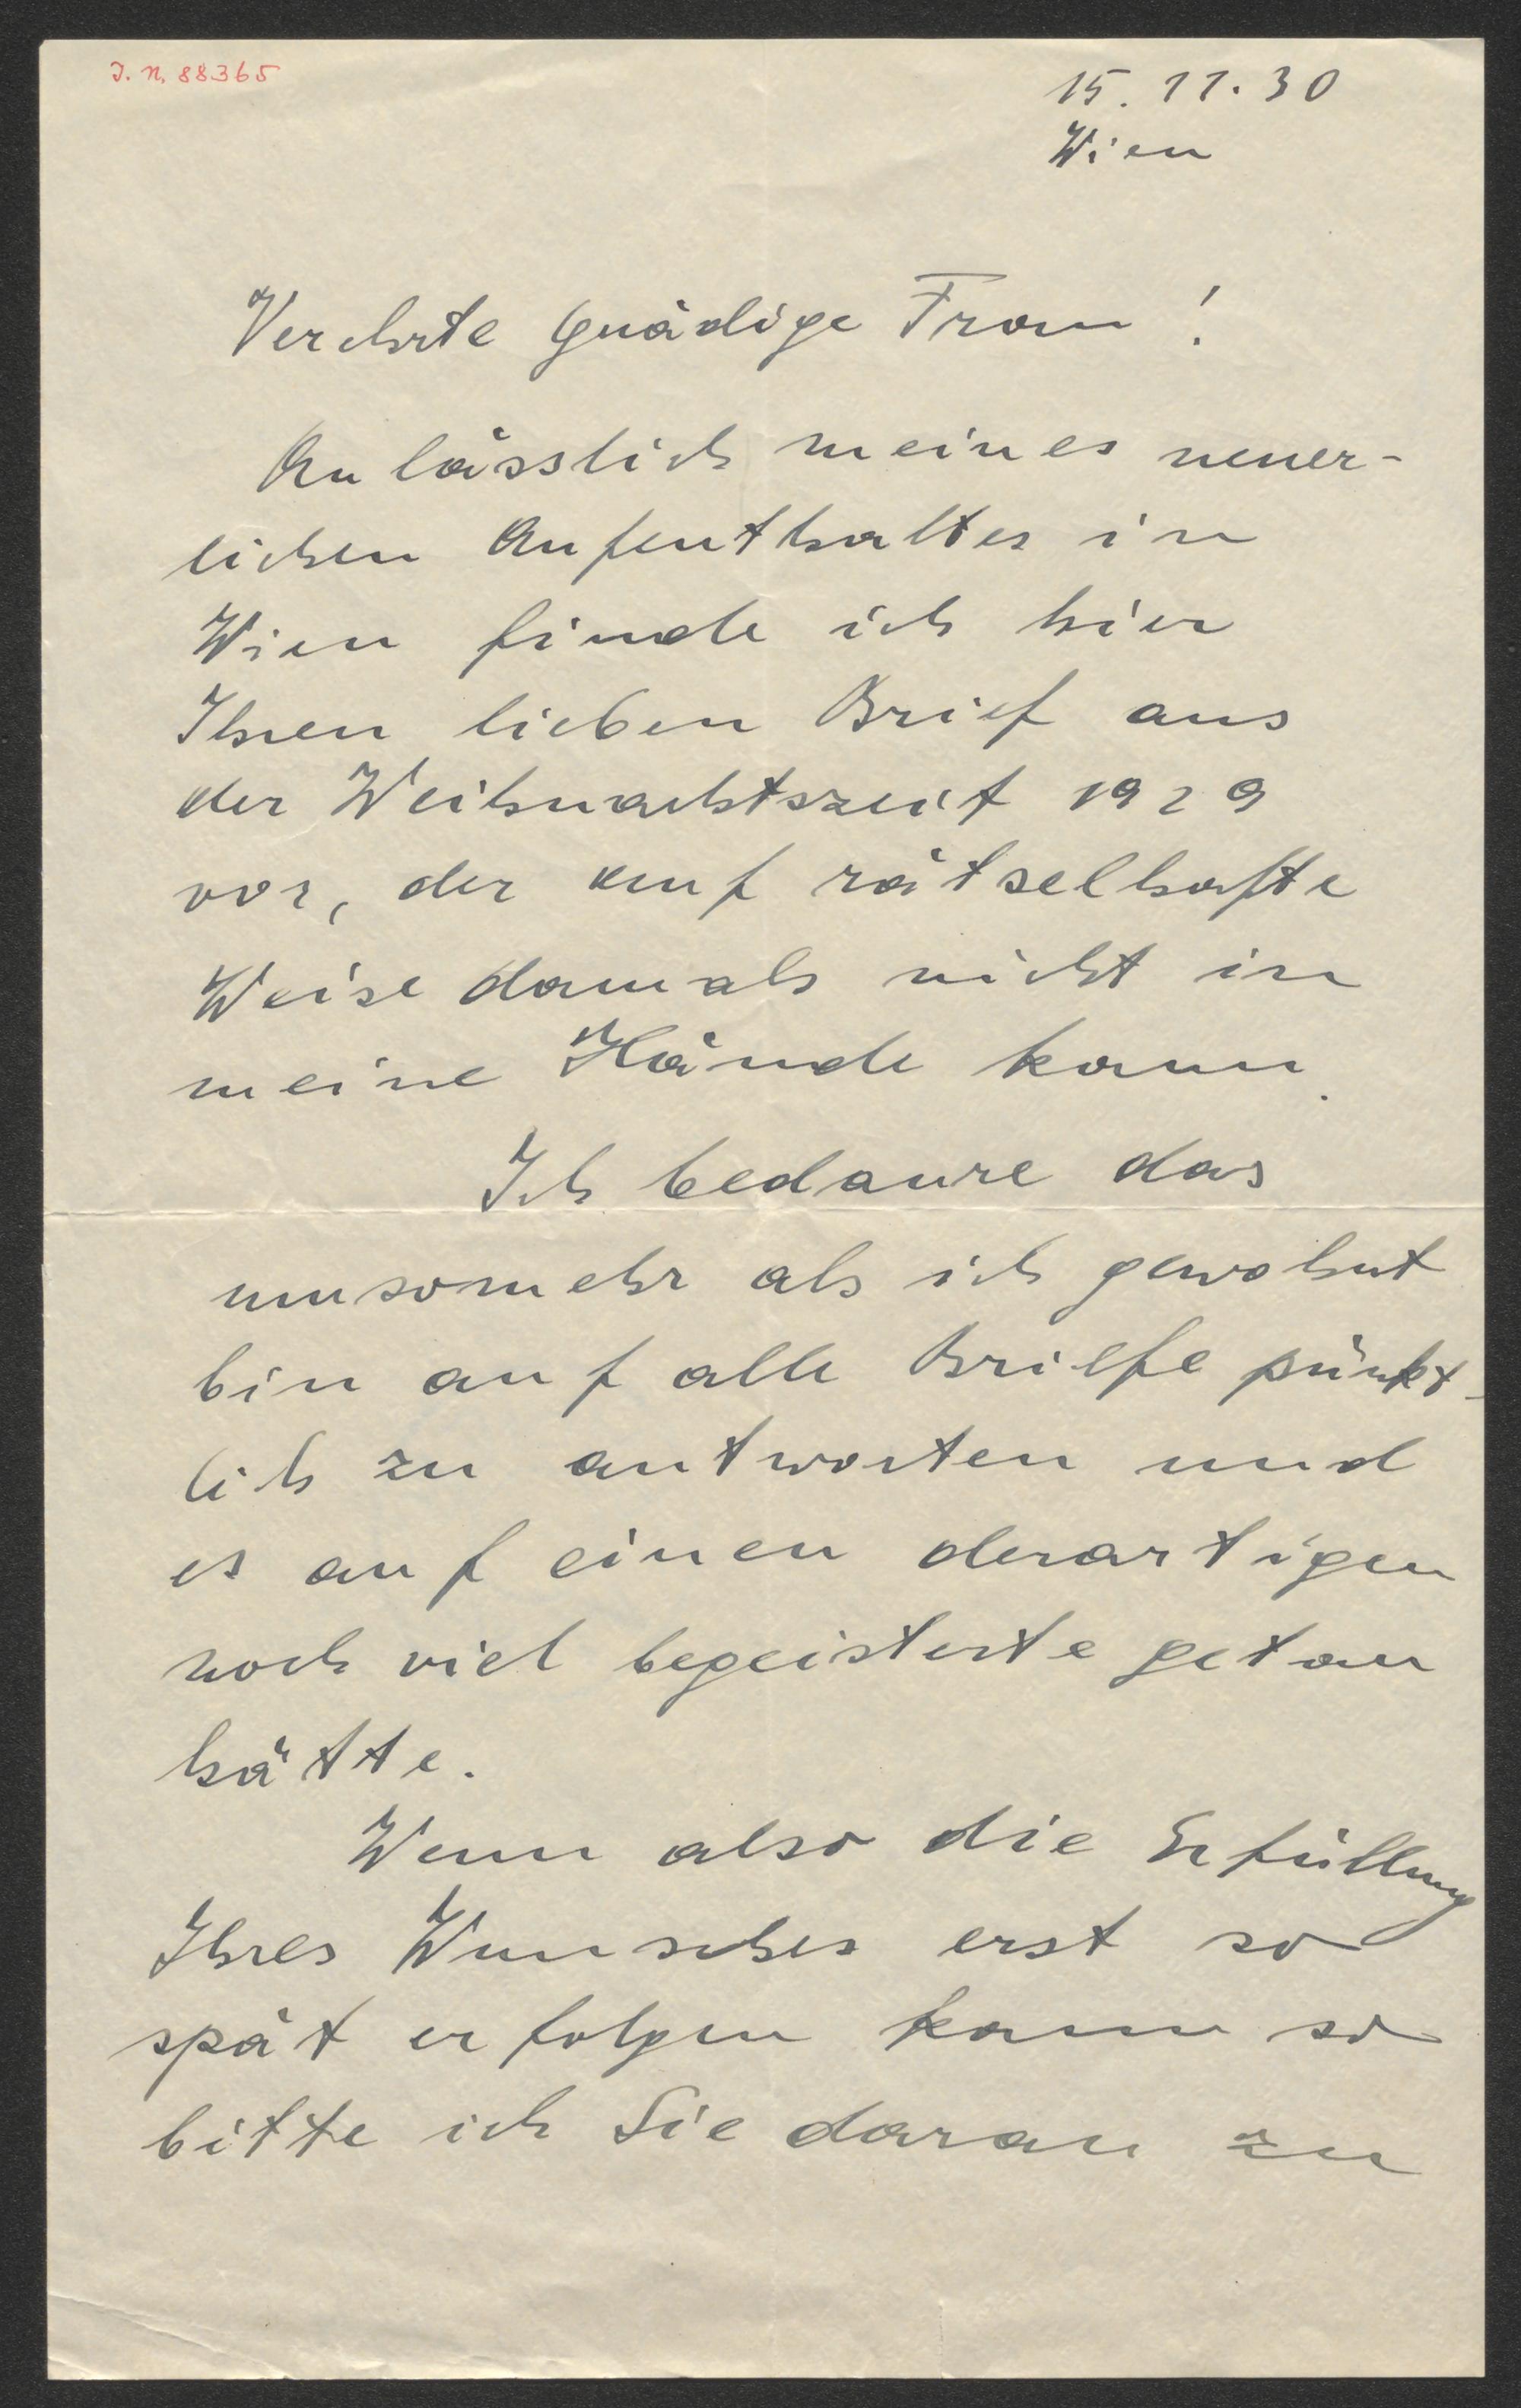 J. N. 88365
15. 11. 30
Wien
Verehrte gnädige Frau!
Anlässlich meines neuer-
lichen Aufenthaltes in
Wien finde ich hier
Ihren lieben Brief aus
der Weihnachtszeit 1929
vor, der auf rätselhafte
Weise damals nicht in
meine Hände kam.
Ich bedaure das
umsomehr als ich gewohnt
bin auf alle Briefe pünkt-
lich zu antworten und
es auf einen derartigen
noch viel begeisterte getan
hätte.
Wenn also die Erfüllung
Ihres Wunsches erst so
spät erfolgen kann so
bitte ich Sie daran zu